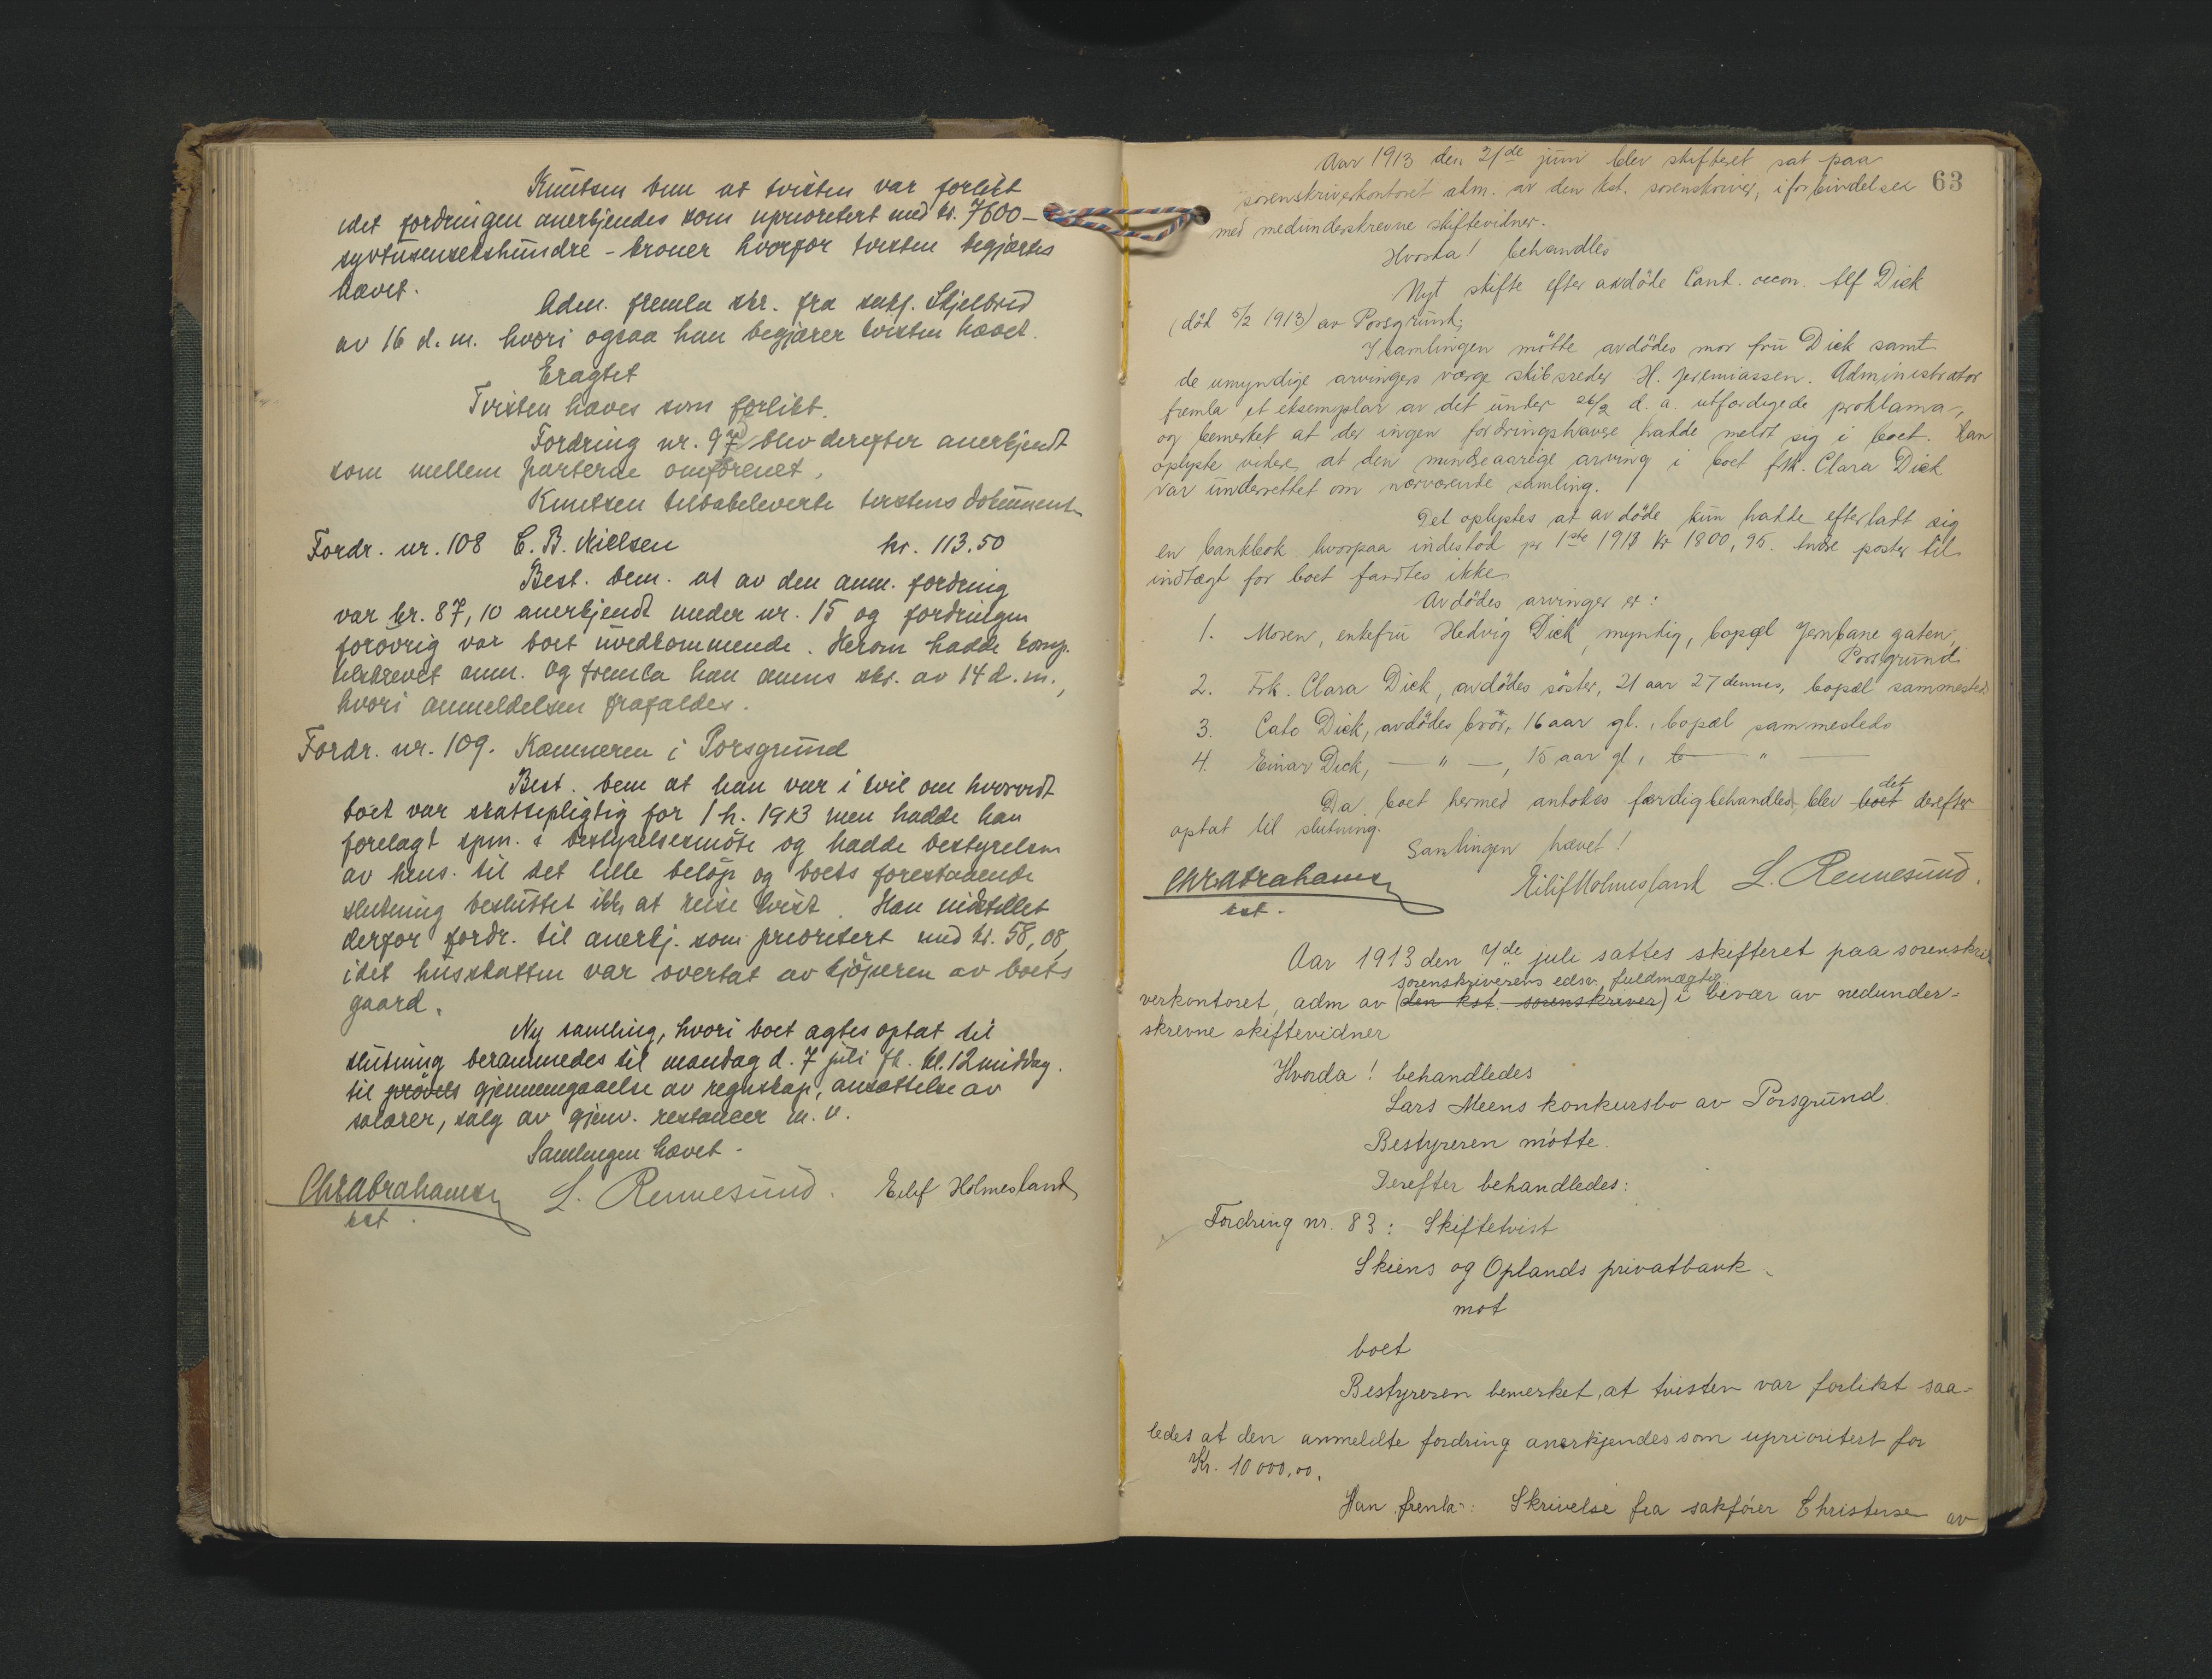 Knutsen bem at tvisten var forlikt
idet fordringen anerkjendes som uprioritert med kr. 7600 –
syvtusensekshundre – kroner hvorfor tvisten begjærtes
hævet.
Adm. fremla skr. fra sakf. Skjelbred
av 16 d. m. hvori ogsaa han begjærer tvisten hævet.
Eragtet
Tvisten hæves som forlikt.
Fordring nr. 97 blev derefter anerkjendt
som mellem parterne omforenet.
Knutsen tilbakeleverte tvistens dokument
Fordr. nr. 108 C. B. Nielsen kr. 113.50
Best. bem. at av den anm. fordring
var kr. 87,10 anerkjendt under nr. 15 og fordringen
forøvrig var boet uvedkommende. Herom hadde komp.
tilskrevet anm. og fremla han anms skr. av 14 d. m.,
hvori anmeldelsen frafaldes.
Fordr. nr. 109. Kæmneren i Porsgrund
Best. bem at han var i tvil om hvorvidt
boet var skattepligtig for 1 h. 1913 men hadde han
forelagt spm. i bestyrelsesmöte og hadde bestyrelsen
av hens. til det lille belöp og boets forestaaende
slutning besluttet ikke at reise tvist. Han indstillet
derfor fordr. til anerkj. som prioritert med kr. 58,08,
idet husskatten var overtat av kjöperen av boets
gaard.
Ny samling, hvori boet agtes optat til
slutning berammedes til mandag d. 7 juli fk. kl. 12 middag.
til prövels gjennemgaaelse av regnskap, ansættelse av
salærer, salg av gjenv. restancer m. v.
Samlingen hævet.
Chr Abrahamsen L. Rennesund. Eilif Holmesland
kst.
63
Aar 1913 den 21de juni blev skifteret sat paa
sorenskriverkontoret adm. av den kst. sorenskriver, i forbindelse
med medunderskrevne skiftevidner.
Hvorda! behandles
Nyt skifte efter avdöde Cand. oecon. Alf Dick
(död 5/2 1913) av Porsgrund;
I samlingen mötte avdödes mor fru Dick samt
de umyndige arvingers værge skibsreder H. Jeremiassen. Administrator
fremla et eksemplar av det under 26/2 d. a. utfærdigede proklama,
og bemerket at der ingen fordringshavere hadde meldt sig i boet. Han
oplyste videre, at den mindreaarige arving i boet frk. Clara Dick
var underrettet om nærværende samling.
Det oplystes at avdöde kun hadde efterladt sig
en bankbok hvorpaa indestod pr 1ste 1913 kr 1800,95. Andre poster til
indtægt for boet fandtes ikke.
Avdödes arvinger er:
1. Moren, enkefru Hedvig Dick, myndig, bopæl Jernbanegaten,
Porsgrund.
2. Frk. Clara Dick, avdödes söster, 21 aar 27 dennes, bopæl sammesteds
3. Cato Dick, avdödes bror, 16 aar gl., bopæl sammesteds
4. Einar Dick, — " —, 15 aar gl, b — " —
Da boet hermed antokes færdigbehandlet, blev boet det derefter
optat til slutning.
Samlingen hævet!
Chr Abrahamsen Eilif Holmesland L. Rennesund.
kst.
Aar 1913 den 7de juli sattes skifteret paa sorenskri-
sorenskriverens edsv. fuldmægtig
verkontoret, adm av (den kst. sorenskriver) i bivær av nedunder-
skrevne skiftevidner
Hvorda! behandledes
Lars Meens konkursbo av Porsgrund.
Bestyreren mötte.
Derefter behandledes:
Fordring nr. 83: Skiftetvist
Skiens og Oplands privatbank
mot
boet
Bestyreren bemerket, at tvisten var forlikt saa-
ledes at den anmeldte fordring anerkjendes som uprioritert for
Kr. 10000,00.
Han fremla: Skrivelse fra sakförer Christensen av